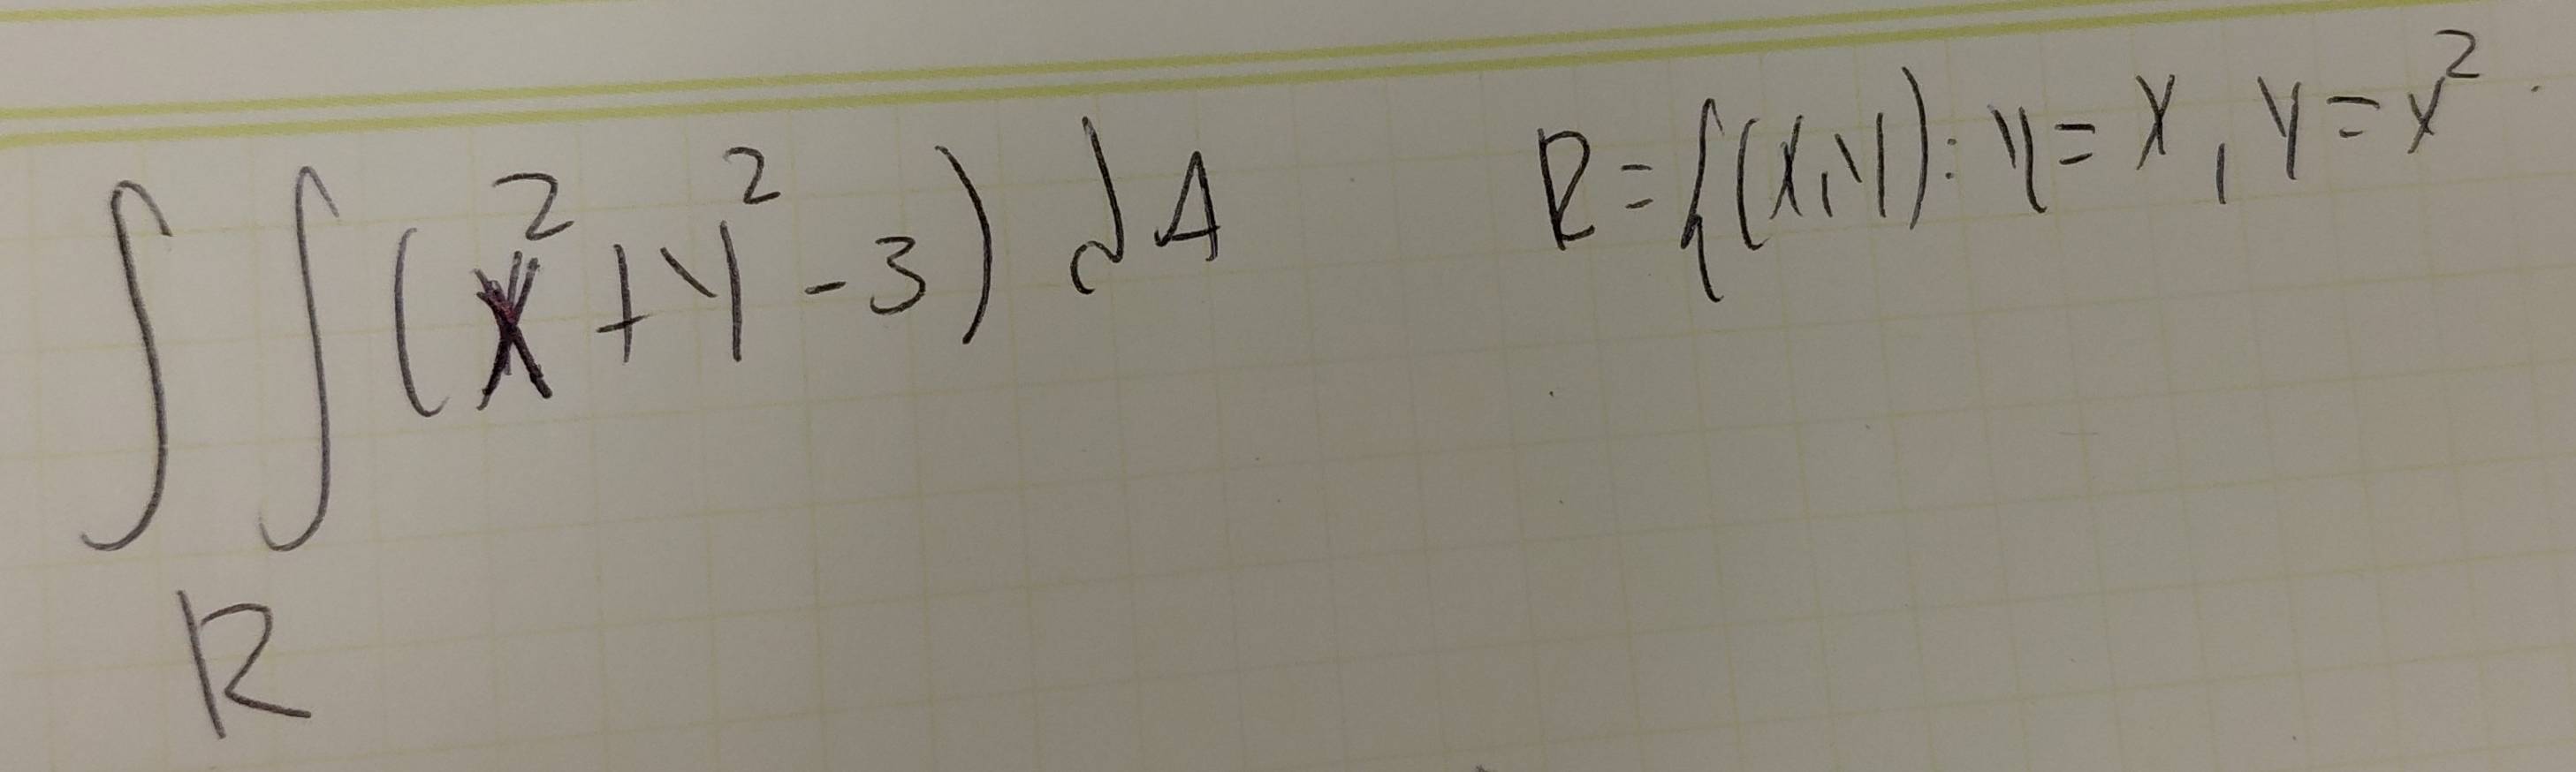 ∫∫(x²+y²-3) dA R={(x,y): y=x, y=x²
R